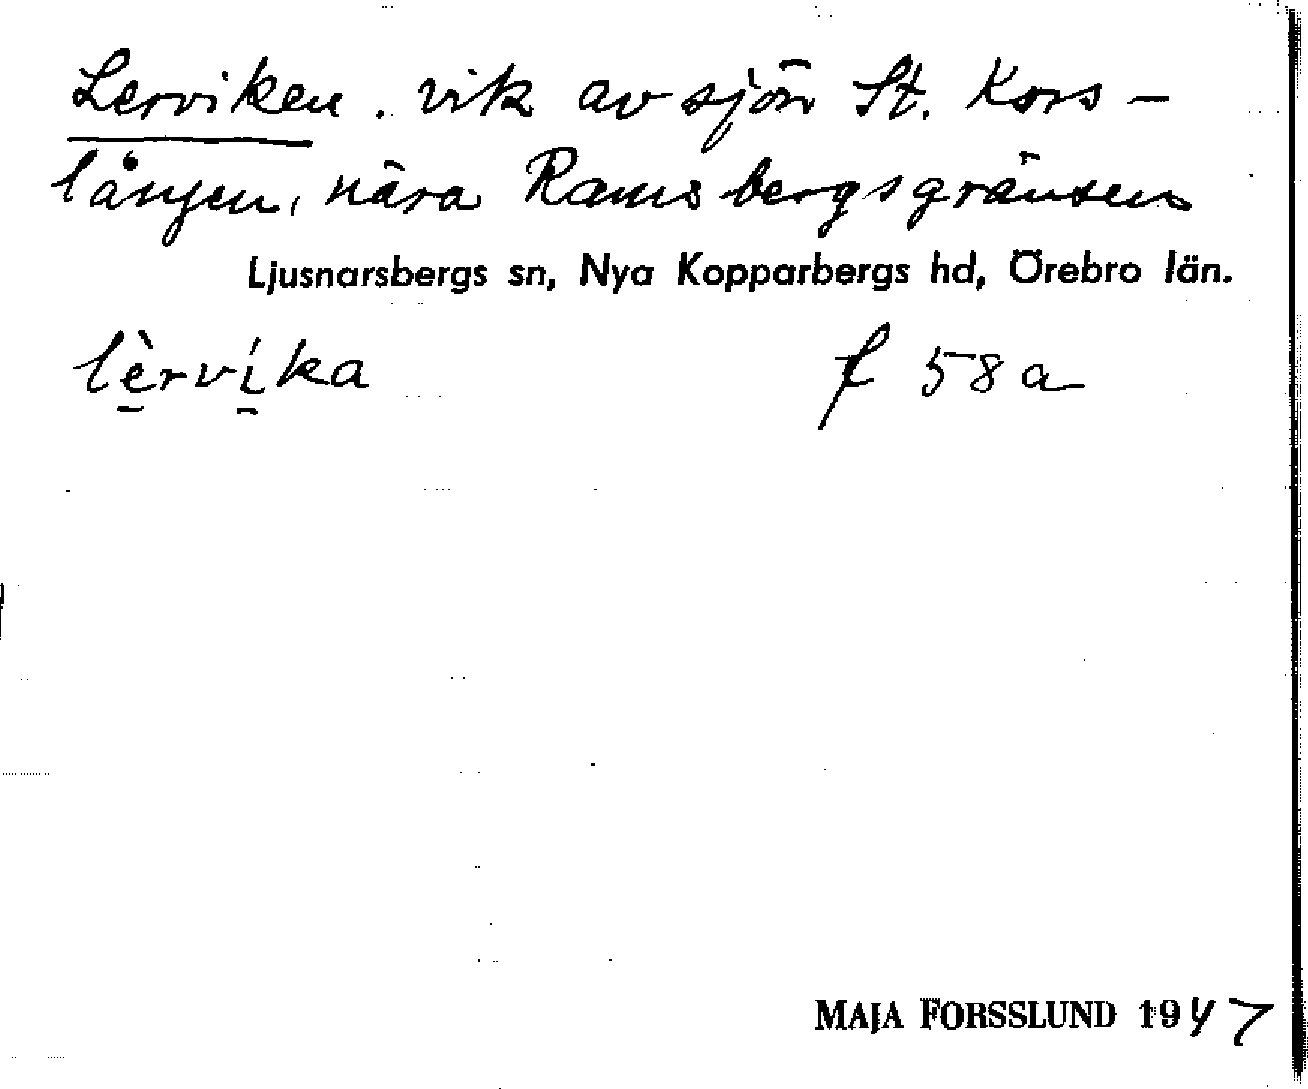 Lerviken. vik av sjön St. Kors-
lången, nära Ramsbergsgränsen
Ljusnarsbergs sn, Nya Kopparbergs hd, Örebro län.
lèrvíka f 58a
MAJA FORSSLUND 1947